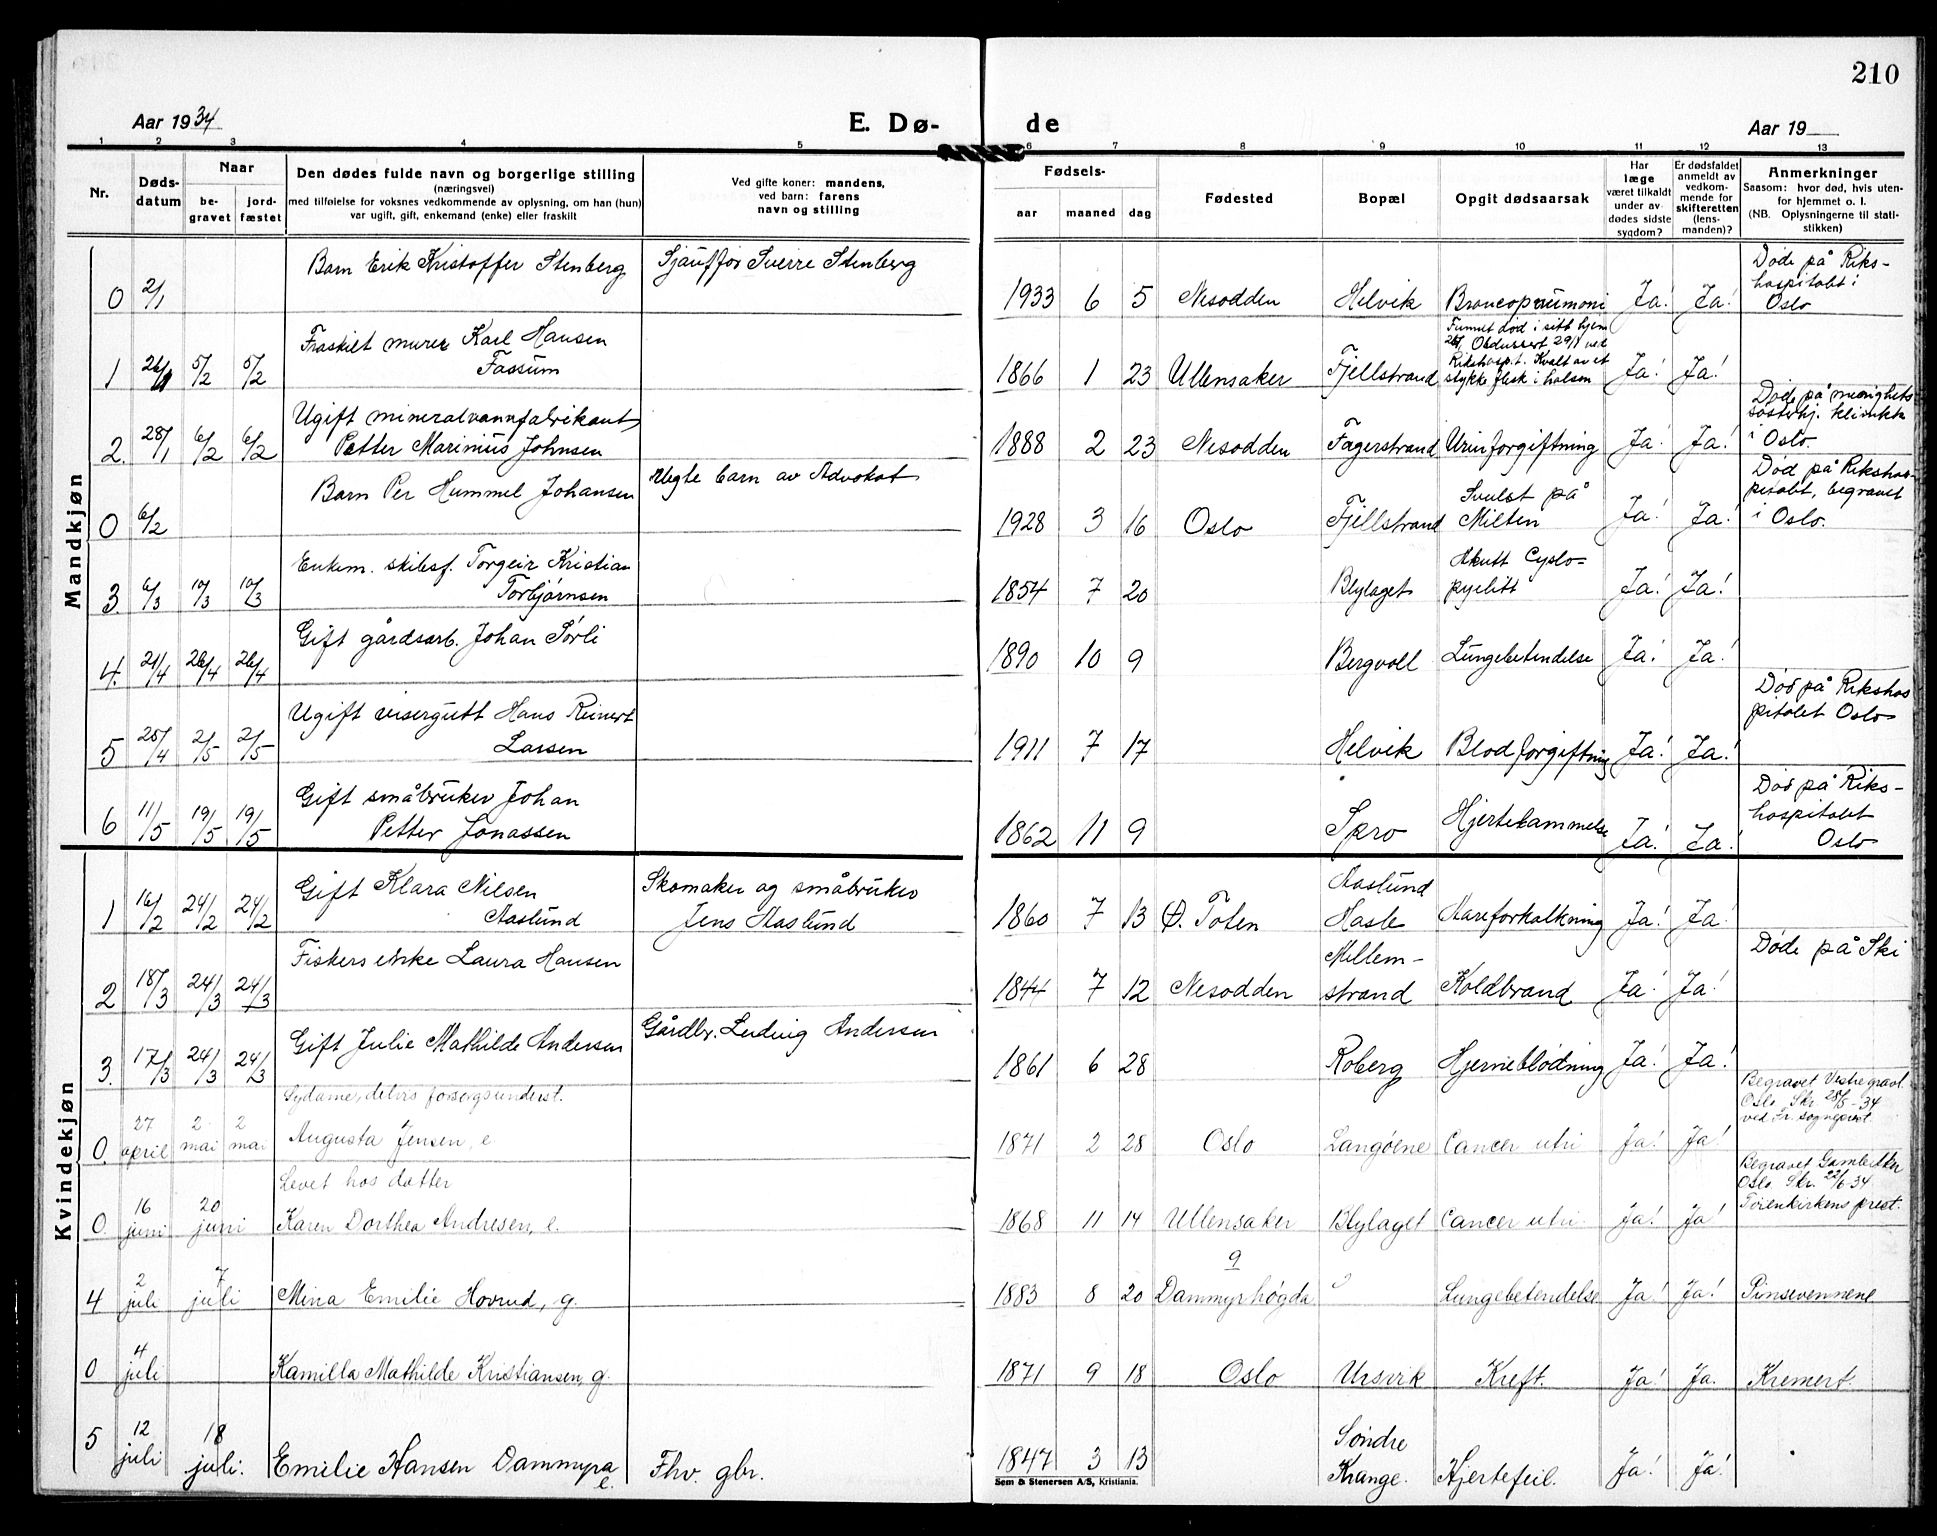 210
Aar 1934 E. Dø- de Aar 19
1 2 3 4 5 6 7 8 9 10 11 12 13
Nr. Døds-datum Naar begravet jordfæstet Den dødes fulde navn og borgerlige stilling (næringsvei) med tilføielse for voksnes vedkommende av oplysning, om han (hun) var ugift, gift, enkemand (enke) eller fraskilt Ved gifte koner: mandens, ved barn: farens navn og stilling Fødsels- aar maaned dag Fødested Bopæl Opgit dødsaarsak Har læge været tilkaldt under avdødes sidste sygdom? Er dødsfaldet anmeldt av vedkommende for skifteretten (lensmanden)? Anmerkninger Saasom: hvor død, hvis utenfor hjemmet o. l. (NB. Oplysningerne til statistikken)
Mandkjøn
0 2/1 Barn Erik Kristoffer Stenberg Sjauffør Sverre Stenberg 1933 6 5 Nesodden Helvik Broncopneumoni Ja! Ja! Døde på Rikshospitalet i Oslo
1 26/1 5/2 5/2 Fraskilt murer Karl Hansen Fossum 1866 1 23 Ullensaker Fjellstrand Funnet død i sitt hjem 26/1, Obdusert 29/1 ved Rikshospit. Kvalt av et stykke flesk i halsen Ja! Ja!
2. 28/1 6/2 6/2 Ugift mineralvannfabrikant Petter Marinius Johnsen 1888 2 23 Nesodden Fagerstrand Urinforgiftning Ja! Ja! Døde på menighetssøsterhj. klinikk i Oslo.
0 6/2 Barn Per Hummel Johansen Uegte barn av Advokat 1928 3 16 Oslo Fjellstrand Svulst på Milten Ja! Ja! Død på Rikshospitalet, begravet i Oslo.
3 6/3 10/3 10/3 Enkem. skibsf. Torgeir Kristian Torbjørnsen 1854 7 20 Blylaget Akutt Cystopyelitt Ja! Ja!
4. 21/4 26/4 26/4 Gift gårdsarb. Johan Sørli 1890 10 9 Bergvoll Lungebetendelse Ja! Ja!
5 25/4 2/5 2/5 Ugift visergutt Hans Reinert Larsen 1911 7 17 Helvik Blodforgiftning Ja! Ja! Død på Rikshospitalet Oslo
6 11/5 19/5 19/5 Gift småbruker Johan Petter Jonassen 1862 11 9 Spro Hjertelammelse Ja! Ja! Død på Rikshospitalet Oslo
Kvindekjøn
1 16/2 24/2 24/2 Gift Klara Nilsen Aaslund Skomaker og småbruker Jens Aaslund 1860 7 13 Ø. Toten Aaslund Hasle Aareforkalkning Ja! Ja!
2 18/3 24/3 24/3 Fiskers enke Laura Hansen 1844 7 12 Nesodden Mellemstrand Koldbrand Ja! Ja! Døde på Ski
3. 17/3 24/3 24/3 Gift Julie Mathilde Andersen Gårdbr. Ludvig Andersen 1861 6 28 Roberg Hjerneblødning Ja! Ja!
0. 27 april 2 mai 2 mai Sydame, delvis forsorgsunderst. Augusta Jensen, e. 1871 2 28 Oslo Langøene Cancer utri Ja! Ja! Begravet Vestre gravl. Oslo Skr. 28/5-34 ved Fr. sogneprest.
0. 16 juni 20 juni Levet hos datter Karen Dorthea Andresen, e. 1868 11 14 Ullensaker Blylaget Cancer utri. Ja! Ja! Begravet Gamle Aker Oslo. Skr. 22/6 34.
4 2 juli 7 juli Mina Emilie Hovrud, g. 1883 8 20 Dammyrhøgda Lungebetendelse Ja! Ja! Pinsevennene
0 4 juli Kamilla Mathilde Kristiansen, g. 1871 9 18 Oslo Ursvik Kreft. Ja! Ja. Kremert.
5 12 juli 18 juli. Emilie Hansen Dammyra e. Fhv. gbr. 1847 3 13 Søndre Krange. Hjertefeil. Ja! Ja!
Sem & Stenersen A/S, Kristiania.